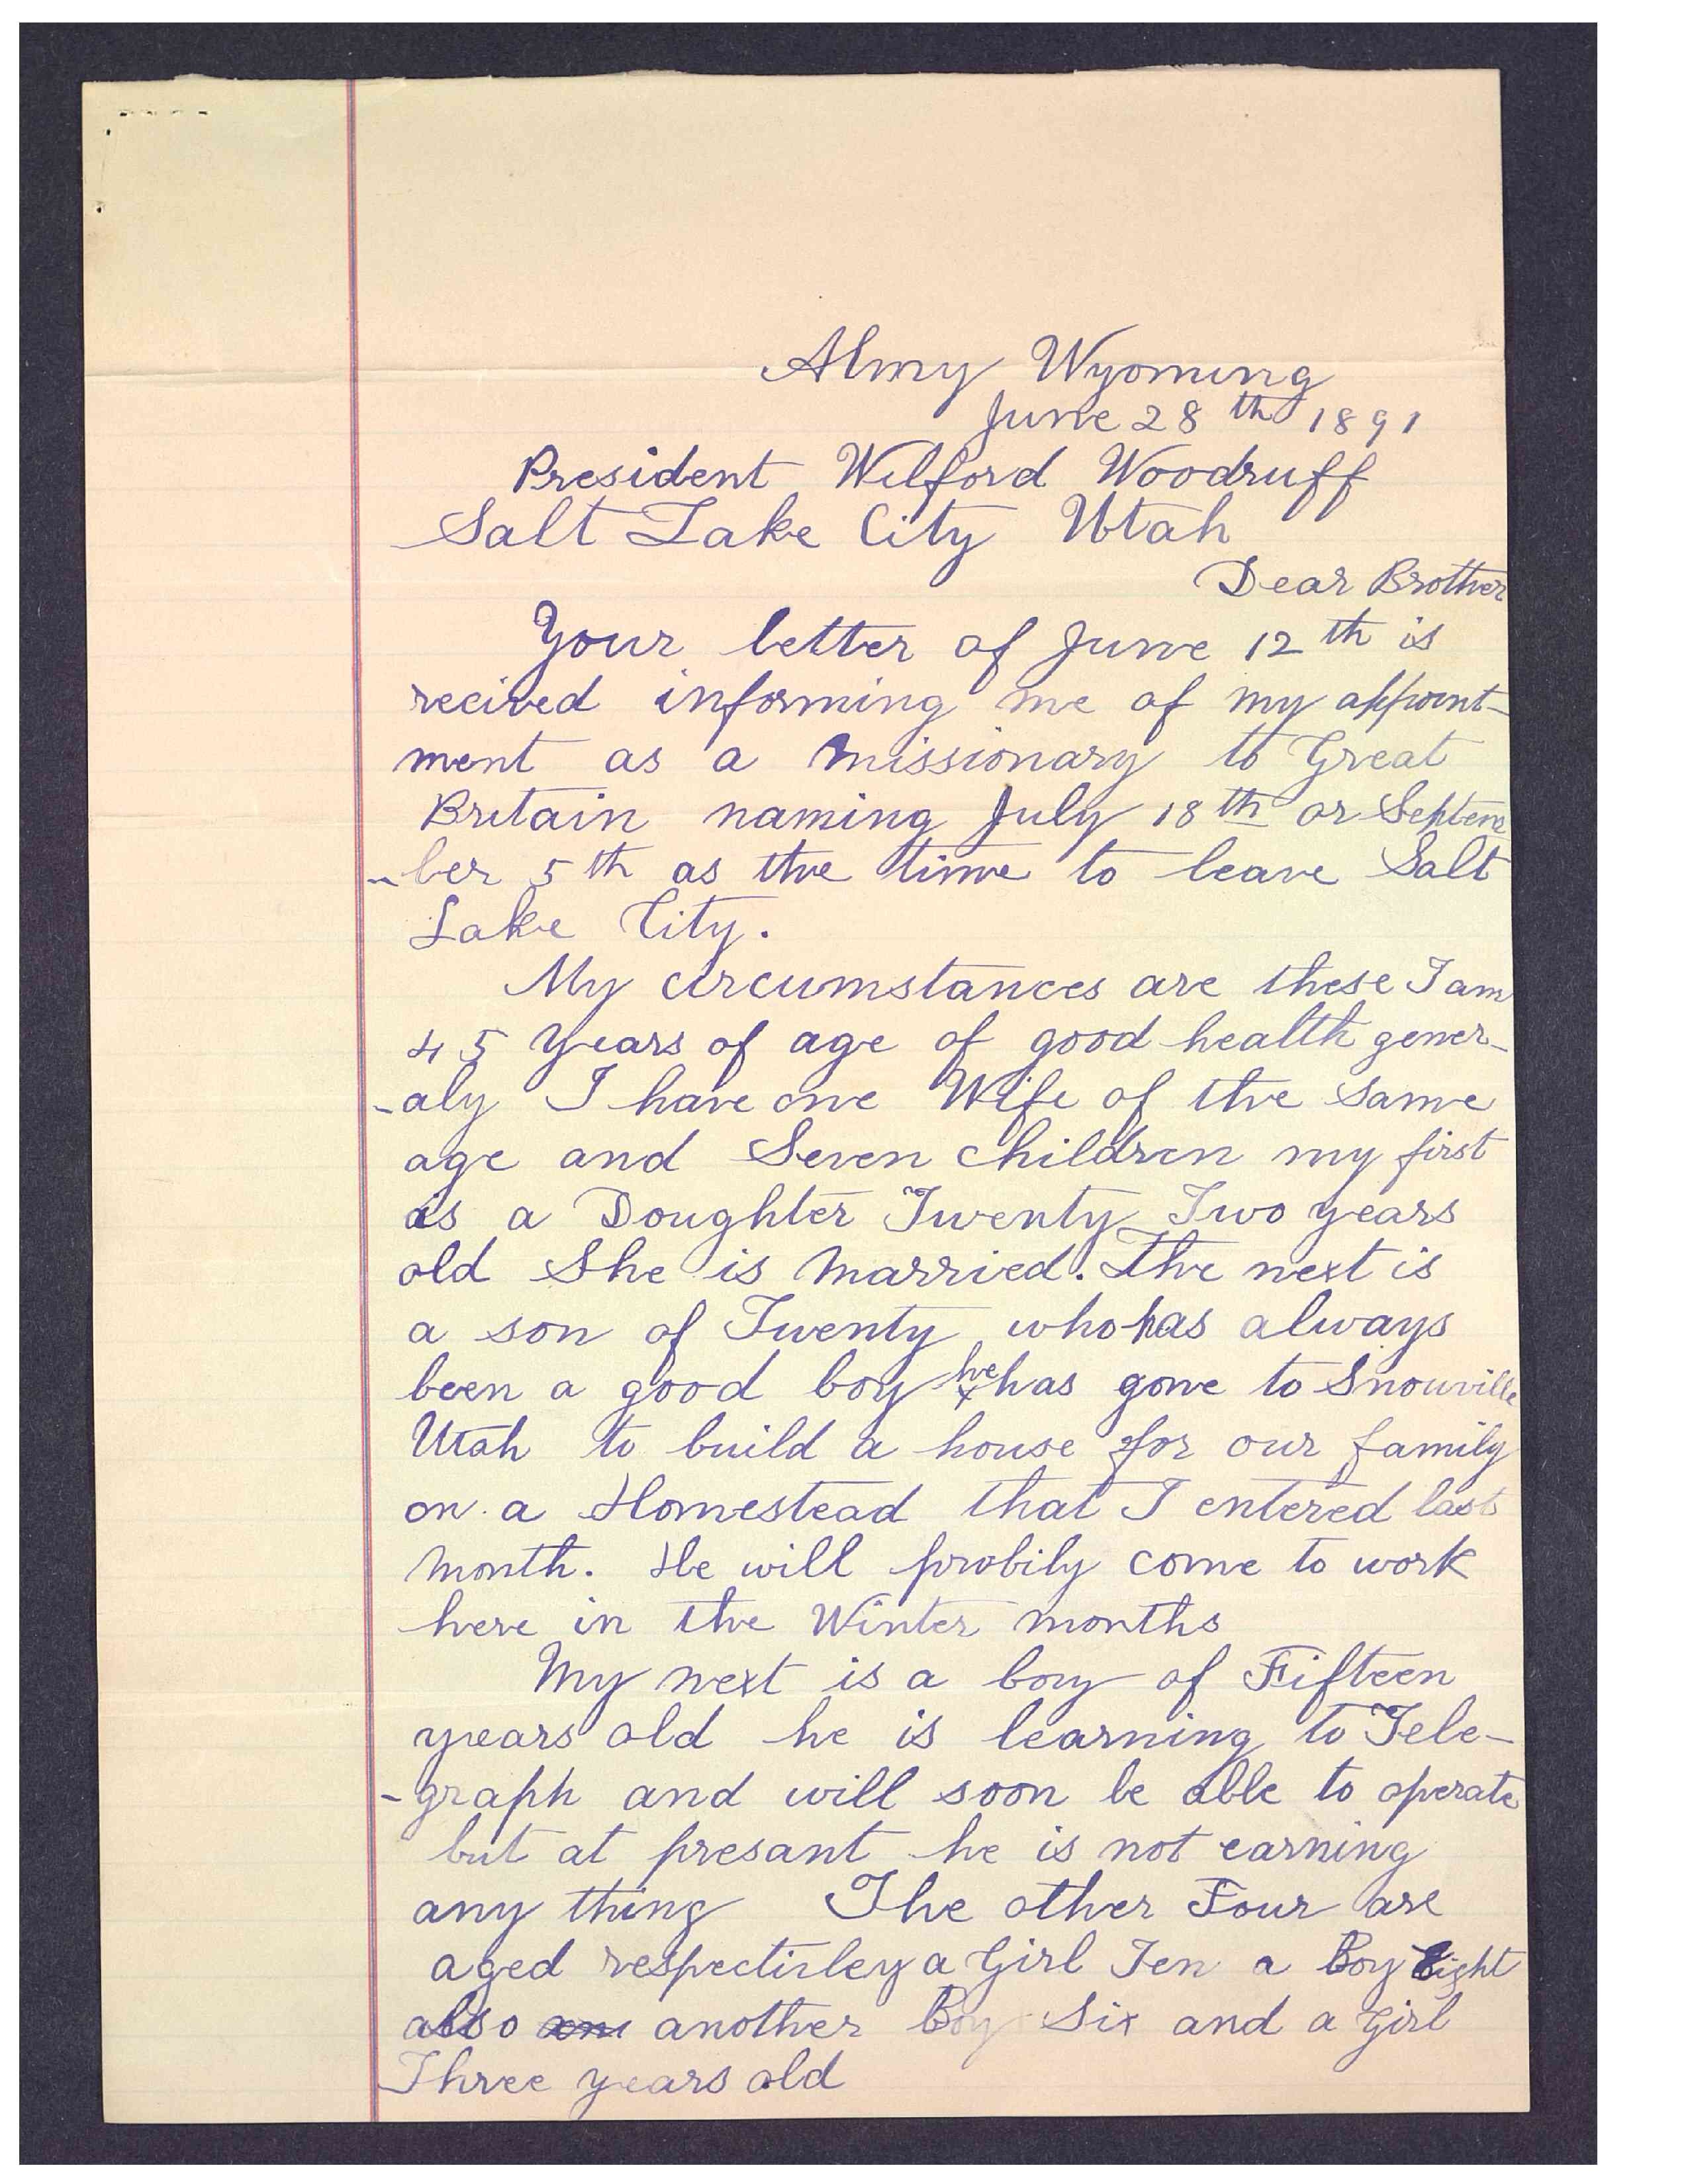 Almy Wyoming
June 28th 1891
President Wilford Woodruff
Salt Lake City Utah
Dear Brother
Your letter of June 12th is
recived informing me of my appoint-
ment as a missionary to Great
Britain naming July 18th or Septem
-ber 5th as the time to leave Salt
Lake City.
My circumstances are these I am
45 years of age of good health gener-
-aly I have one Wife of the same
age and Seven children my first
is a Doughter Twenty Two years
old She is married. The next is
a son of Twenty who has always
been a good boy he has gone to Snowville
Utah to build a house for our family
on a Homestead that I entered last
month. He will probily come to work
here in the Winter months
My next is a boy of Fifteen
years old he is learning to Tele-
-graph and will soon be able to operate
but at presant he is not earning
any thing The other Four are
aged respectivley a Girl Ten a Boy Eight
also an another Boy Six and a Girl
Three years old